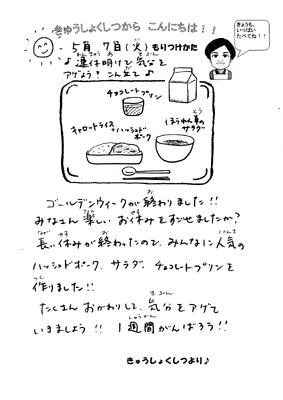 きゅうしょくしつから こんにちは!!
きょうも、
いっぱい
たべてね!!
5月 7日(火)もりつけかた
♪連休明けで気分を
アゲよう?こんだて♪
チョコレートプリン
キャロットライス
ハッシュド
ポーク
ほうれん草の
サラダ
ゴールデンウィークが終わりました!!
みなさん 楽しい お休みをすごせましたか?
長い休みが終わったので、みんなに人気の
ハッシュドポーク、サラダ、チョコレートプリンを
作りました!!
たくさん おかわりして、気分をアゲて
いきましょう!! 1週間がんばろう!!
きゅうしょくしつより♪